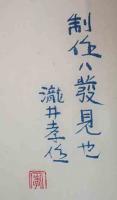 制作ハ發見也
瀧井孝作